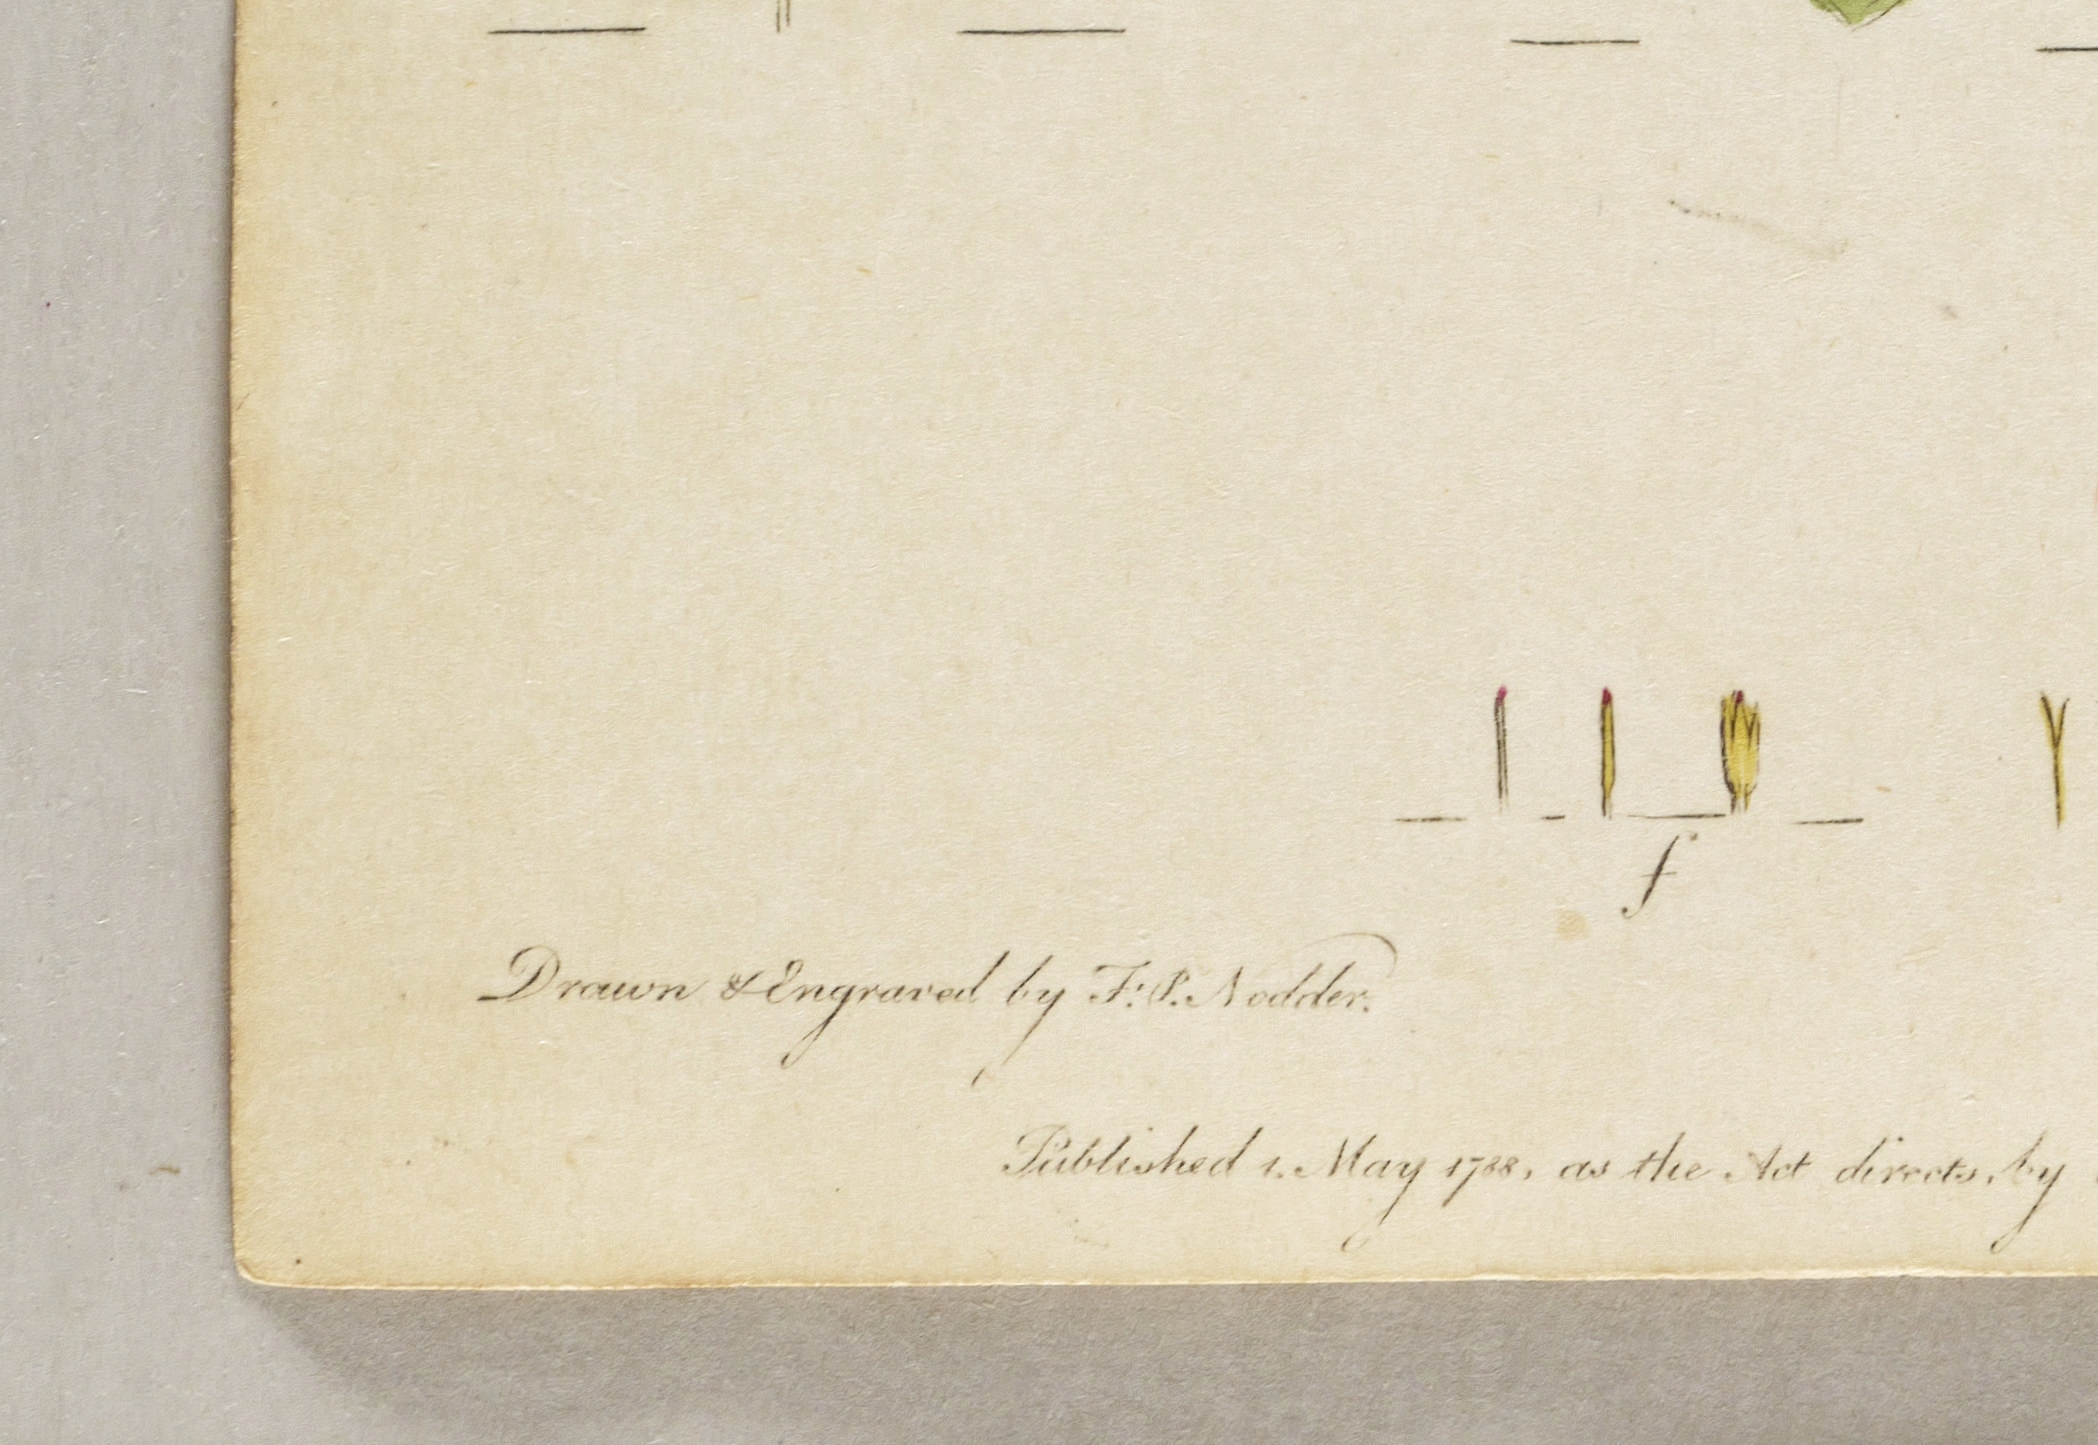 f
Drawn & Engraved by F. P. Nodder.
Published 1. May 1788, as the Act directs, by